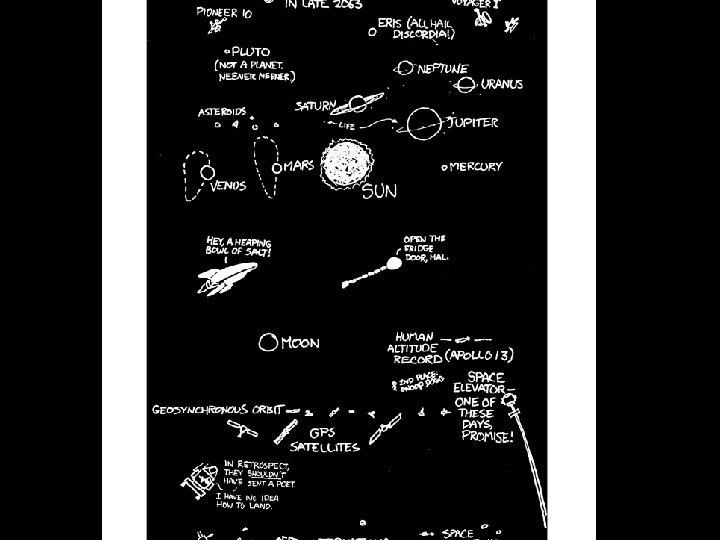 PIONEER 10
IN LATE 2063
VOYAGER 1
ERIS (ALL HAIL
DISCORDIA!)
PLUTO
(NOT A PLANET.
NEENER NEENER.)
NEPTUNE
URANUS
SATURN
ASTEROIDS
LIFE
JUPITER
MARS
VENUS
SUN
MERCURY
HEY, A HEAPING
BOWL OF SALT!
OPEN THE
FRIDGE
DOOR, HAL.
MOON
HUMAN
ALTITUDE
RECORD (APOLLO 13)
2ND PLACE:
SNOOP DOGG
SPACE
ELEVATOR—
ONE OF
THESE
DAYS,
PROMISE!
GEOSYNCHRONOUS ORBIT
GPS
SATELLITES
IN RETROSPECT,
THEY SHOULDN'T
HAVE SENT A POET.
I HAVE NO IDEA
HOW TO LAND.
SPACE